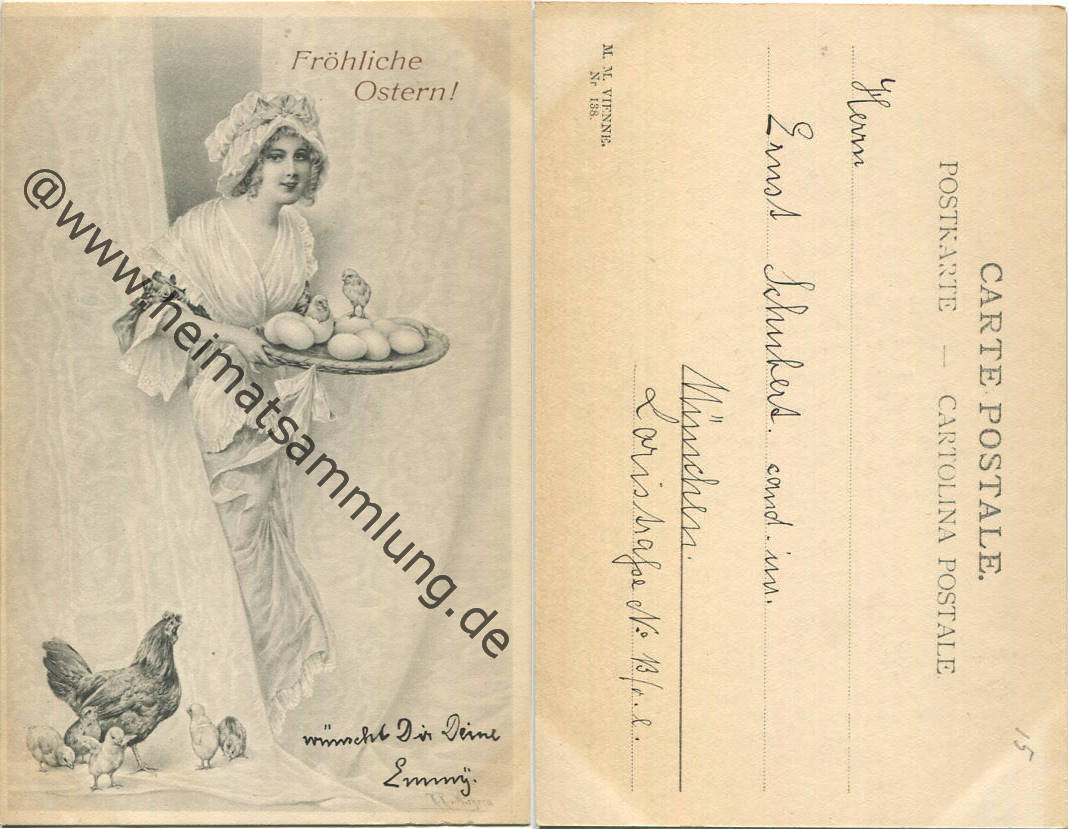 Fröhliche
Ostern!
@www.heimatsammlung.de
wünscht Dir Deine
Emmÿ.
CARTE POSTALE.
POSTKARTE — CARTOLINA POSTALE
Herrn
Ernst Schubert. cand. im.
München.
Nº 13/o.l.
M. M. VIENNE.
Nr 138.
15